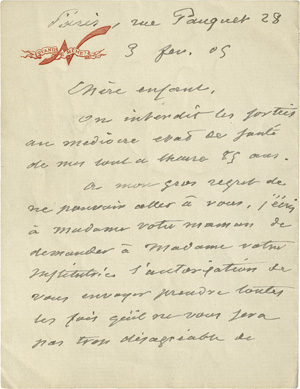 Paris, rue Pauquet 28
3 fev. 05
Chère enfant,
On interdit les sorties
au médiocre état de santé
de mes tout à l'heure 85 ans.
A mon gros regret de
ne pouvoir aller à vous, j'écris
à Madame votre maman de
demander à Madame votre
Institutrice l'autorisation de
vous envoyer prendre toutes
les fois qu'il ne vous sera
pas trop désagréable de